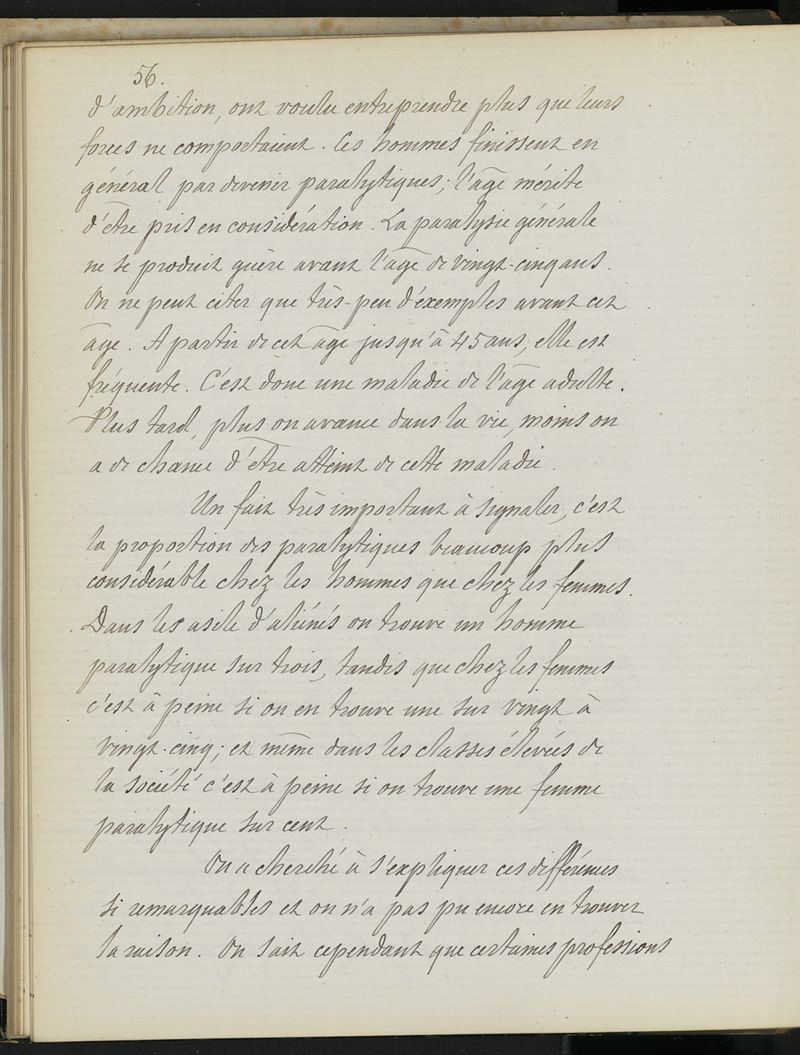 56.
d'ambition, ont voulu entreprendre plus que leurs
forces ne comportaient. Ces hommes finissent en
général par devenir paralytiques; l'âge mérite
d'être pris en considération. La paralysie générale
ne se produit guère avant l'âge de vingt-cinq ans.
On ne peut citer que très-peu d'exemples avant cet
âge. A partir de cet âge jusqu'à 45 ans, elle est
fréquente. C'est donc une maladie de l'âge adulte.
Plus tard, plus on avance dans la vie, moins on
a de chance d'être atteint de cette maladie.
Un fait très important à signaler, c'est
la proportion des paralytiques beaucoup plus
considérable chez les hommes que chez les femmes.
Dans les asile d'aliénés on trouve un homme
paralytique sur trois, tandis que chez les femmes
c'est à peine si on en trouve une sur vingt à
vingt-cinq; et même dans les classes élevées de
la société c'est à peine si on trouve une femme
paralytique sur cent.
On a cherché à s'expliquer ces différences
si remarquables et on n'a pas pu encore en trouver
la raison. On sait cependant que certaines professions